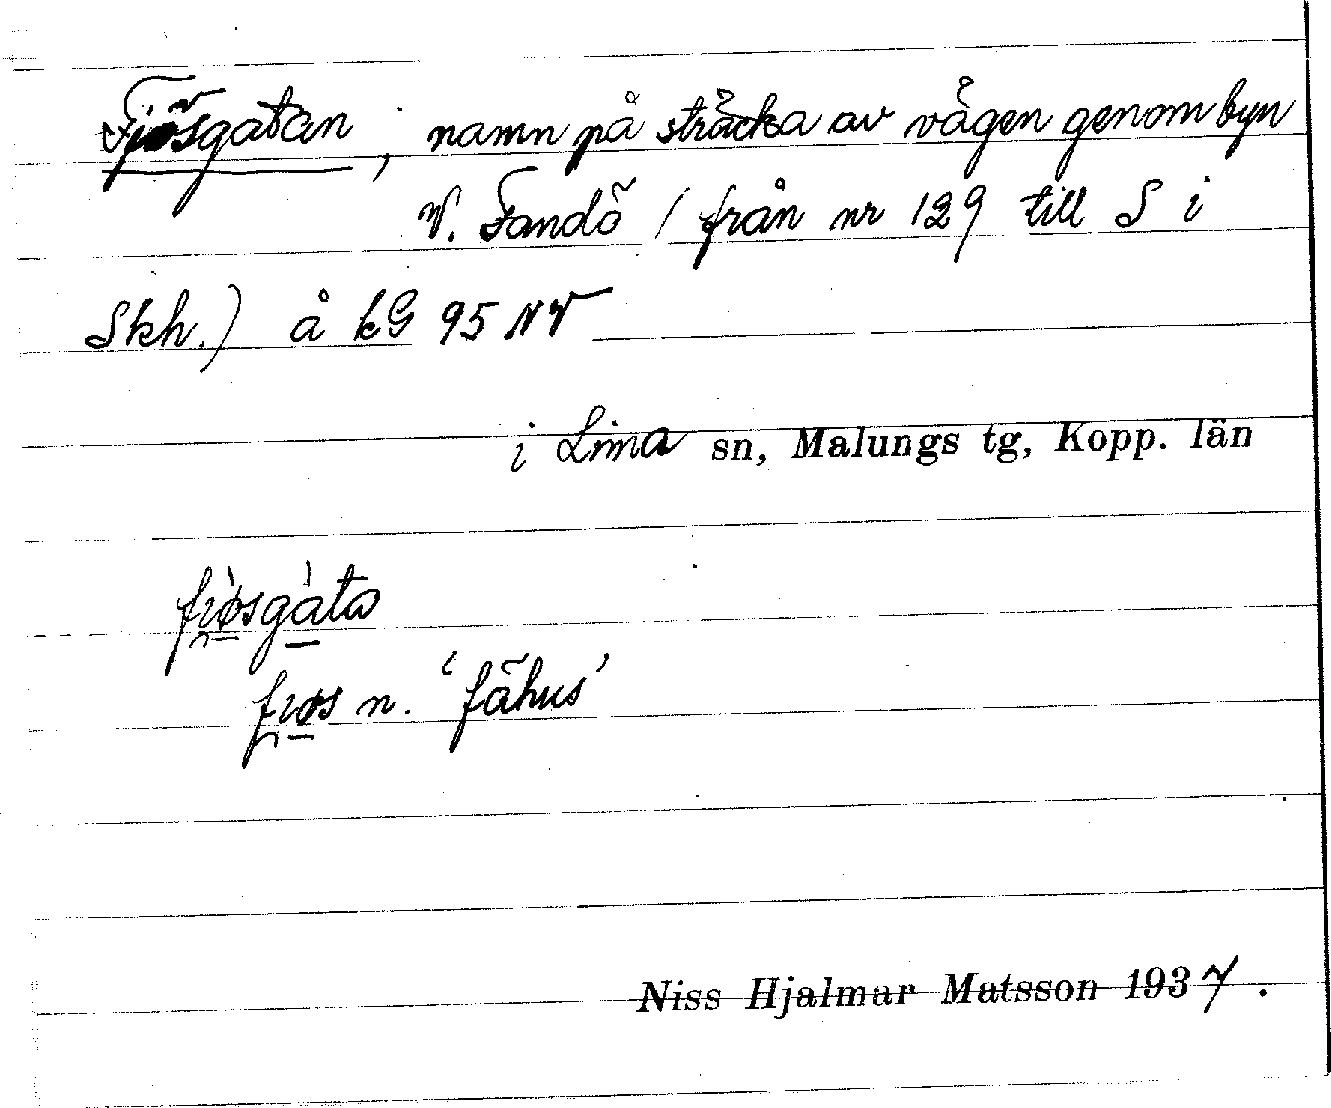 Fjösgatan, namn på sträcka av vägen genom byn
V. Fandö (från nr 129 till S i
Skh.) å kG 95 NV
i Lima sn, Malungs tg, Kopp. län
fi̯øsgàta
fi̯øs n. ‘fähus’
Niss Hjalmar Matsson 1937.